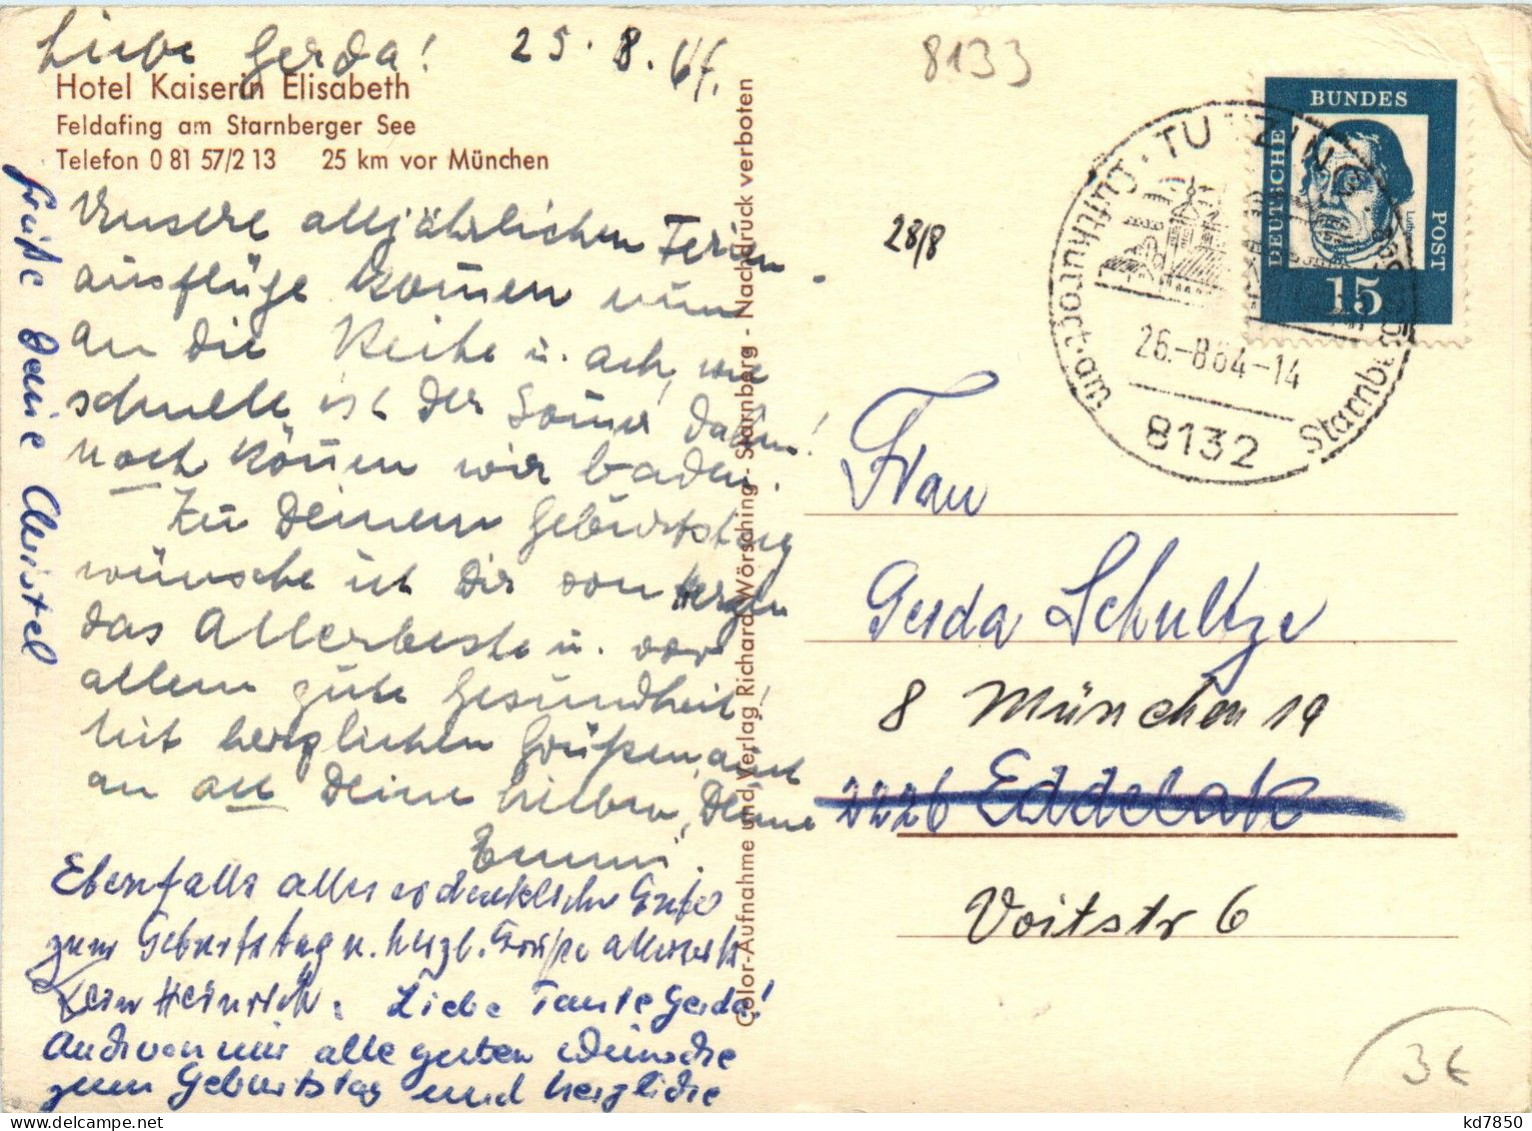 Liebe Gerda! 25.8.64.
8133
Hotel Kaiserin Elisabeth
Feldafing am Starnberger See
Telefon 0 81 57/2 13 25 km vor München
Unsere alljährlichen Ferien-
ausflüge kom̅en nun
an die Reihe u. ach, wie
schnell ist der Som̅er dahin!
noch kön̅en wir baden.
Zu Deinem Geburtstag
wünsche ich Dir von Herzen
das Allerbeste u. vor
allem gute Gesundheit!
Mit herzlichen Grüßen, auch
an all Deine Lieben, Deine
Emmi.
Ebenfalls alles erdenklich Gute
zum Geburtstag u. herzl. Grüße allerseits
Dein Heinrich. Liebe Tante Gerda!
Auch von mir alle guten Wünsche
zum Geburtstag und herzliche
Grüße Deine Christel
Color-Aufnahme und Verlag Richard Wörsching - Starnberg - Nachdruck verboten
28/8
TUTZING
Luftkurort
am Starnberger See
26.-8 64-14
8132
DEUTSCHE
BUNDES
POST
Luther
15
Frau
Gerda Schultze
8 München 19
2226 Eddelak
Voitstr 6
3€
kd7850